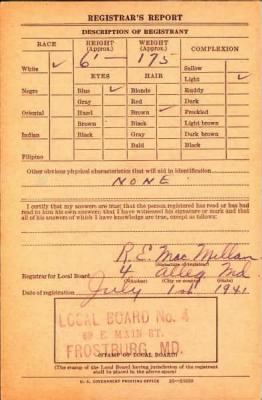 REGISTRAR'S REPORT
DESCRIPTION OF REGISTRANT
RACE HEIGHT (Approx.) WEIGHT (Approx.) COMPLEXION
White ✓ 6' — 175 Sallow
EYES HAIR Light ✓
Negro Blue ✓ Blonde Ruddy
Gray Red Dark
Oriental Hazel Brown ✓ Freckled
Brown Black Light brown
Indian Black Gray Dark brown
Bald Black
Filipino
Other obvious physical characteristics that will aid in identification
NONE
I certify that my answers are true; that the person registered has read or has had
read to him his own answers; that I have witnessed his signature or mark and that
all of his answers of which I have knowledge are true, except as follows:
R.E. MacMillan
(Signature of registrar)
Registrar for Local Board 4 Alleg Md
(Number) (City or county) (State)
Date of registration July 1st 1941
LOCAL BOARD No. 4
E MAIN ST.
FROSTBURG, MD.
(STAMP OF LOCAL BOARD)
(The stamp of the Local Board having jurisdiction of the registrant
shall be placed in the above space)
U. S. GOVERNMENT PRINTING OFFICE